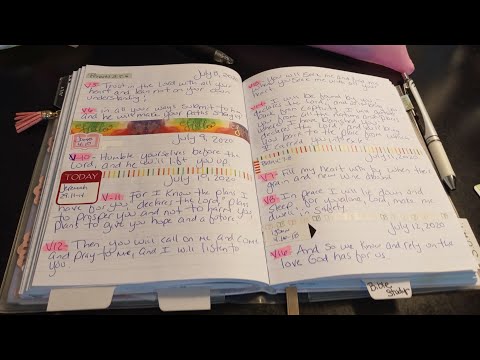 Proverbs 3:5-6
July 8, 2020
V.5- Trust in the Lord with all your
heart and lean not on your own
understanding;
V.6- in all your ways submit to him,
and he will make your paths straight.
James
4:10
July 9, 2020
V-10- Humble yourselves before the
Lord, and he will lift you up.
July 10, 2020
TODAY
Jeremiah
V-11- for I know the plans I
have for you, declares the Lord, plans
to prosper you and not to harm you
Plans to give you hope and a future.
V.12- Then, you will call on me and come
and pray to me, and I will listen to
you
You will seek me and find me
when you seek me with all your
heart.
be found by you,
declares the Lord, and
declares the Lord, and will
to the place from
July 11, 2020
V.7- Fill my heart with joy when their
grain and new wine abound.
V.8- In peace I will lie down and
sleep, for you alone, Lord, make me
dwell in safety.
July 12, 2020
V.16- And so we know and rely on the
love God has for us.
Bible
Study